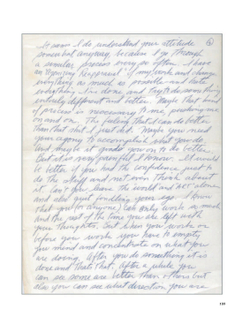 It seems I do understand your attitude
somewhat, anyway, because I go through
a similar process every so often. I have
an agonizing reappraisal of my work and change
everything as much as possible and hate
everything I've done, and try to do something
entirely different and better. Maybe that kind
of process is necessary to me, pushing me
on and on. The feeling that I can do better
than that shit I just did. Maybe you need
your agony to accomplish what you do
and maybe it goads you on to do better.
But it is very painful I know. It would
be better if you had the confidence just to
do the stuff and not even think about
it. Can't you leave the world and ART alone
and also quit fondling your ego. I know
that you (or anyone) can only work so much
and the rest of the time you are left with
your thoughts. But when you work or
before your work you have to empty
you mind and concentrate on what you
are doing. After you do something it is
done and that's that. After a while you
can see some are better than others but
also you can see what direction you are